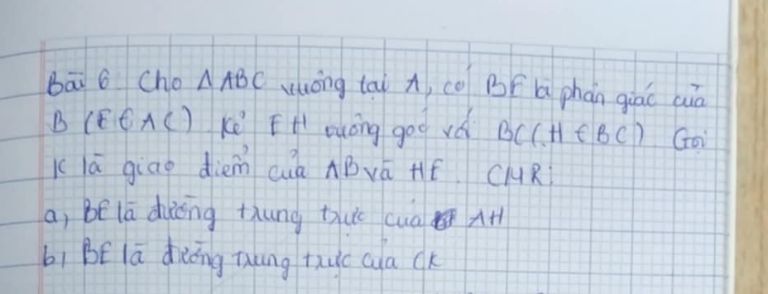 Bài 6 Cho ΔABC vuông tại A, có BE là phân giác của
B (E ∈ AC) Kẻ EH vuông góc với BC (H ∈ BC) Gọi
K là giao điểm của AB và HE. CMR:
a, BE là đường trung trực của AH
b, BE là đường trung trực của CK